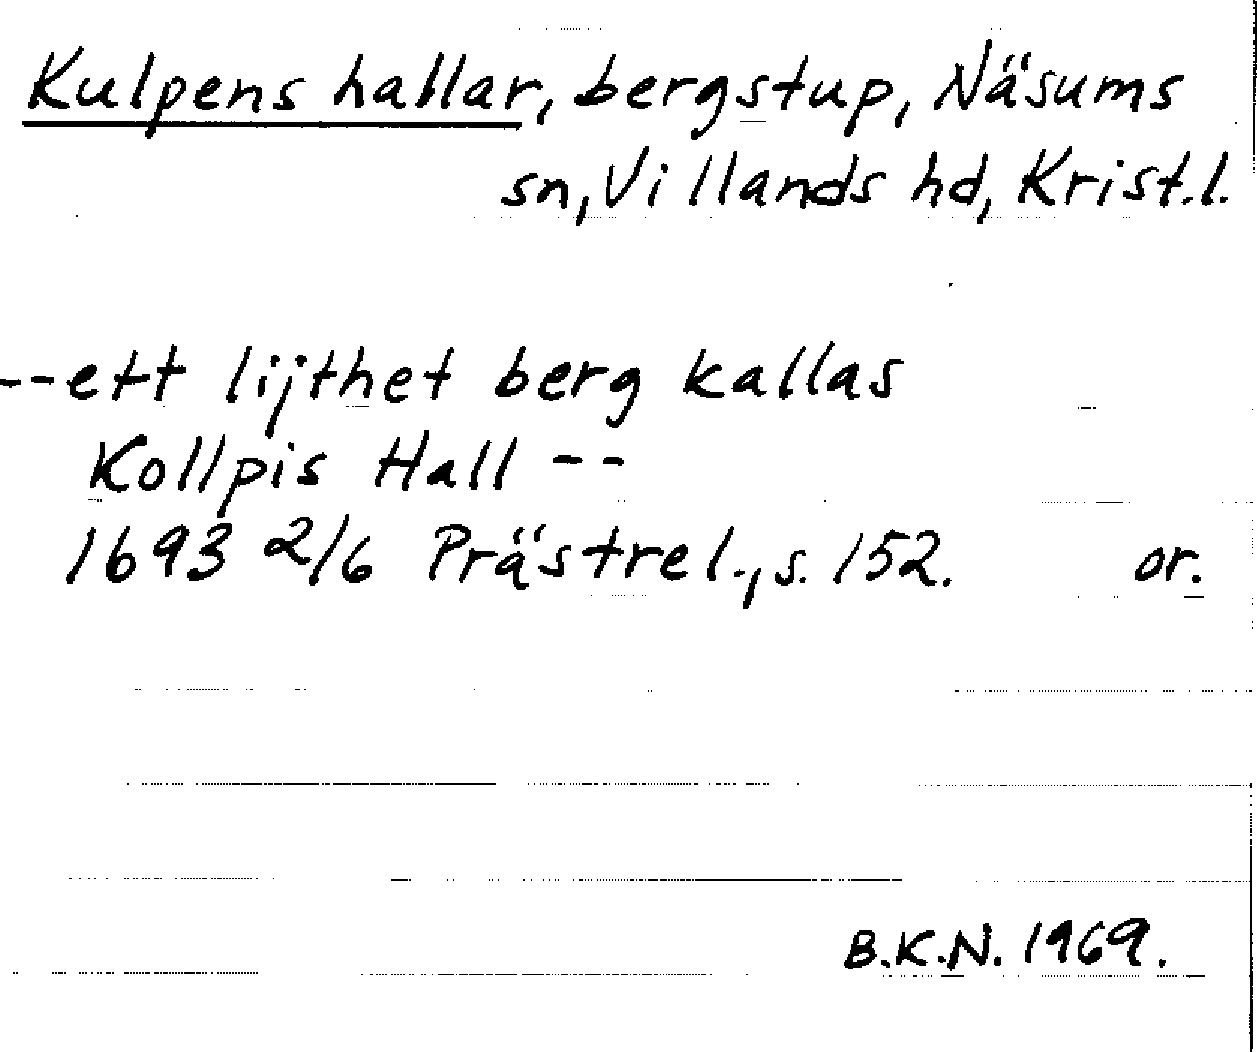 Kulpens hallar, bergstup, Näsums
sn, Villands hd, Krist.l.
--ett lijthet berg kallas
Kollpis Hall --
1693 2/6 Prästrel., s. 152. or.
B.K.N. 1969.